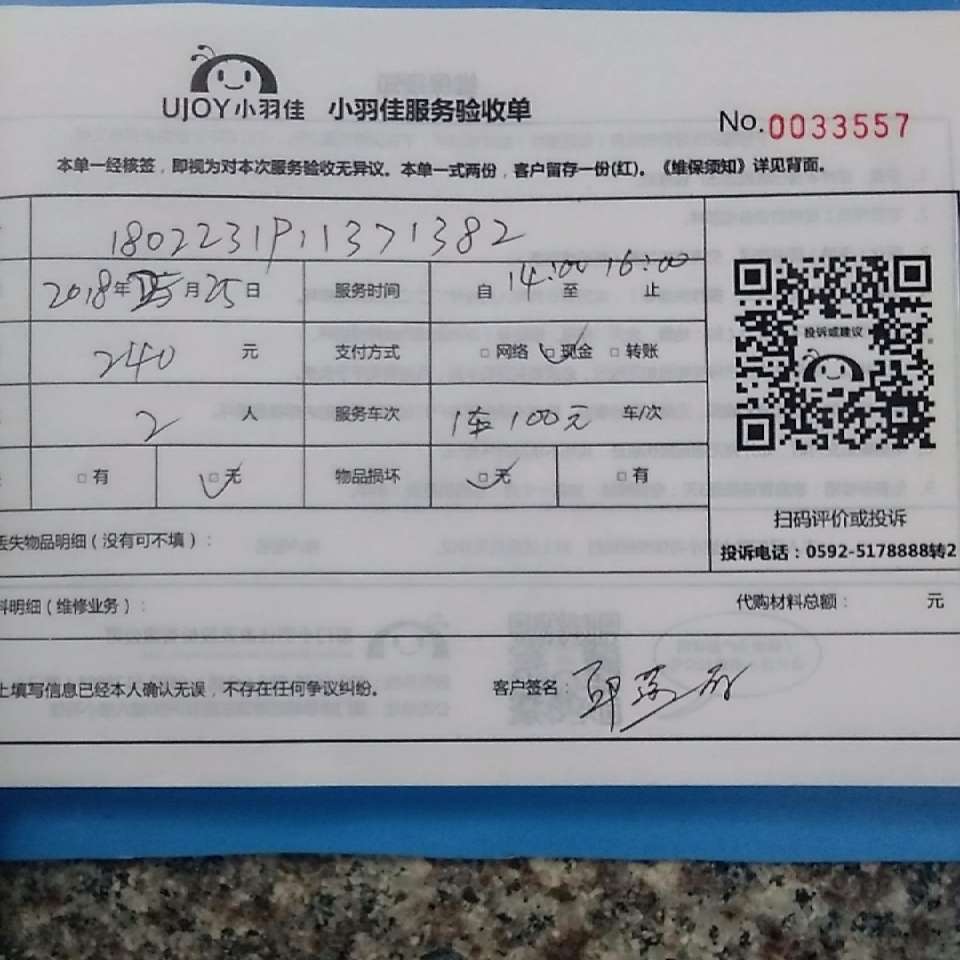 UJOY小羽佳 小羽佳服务验收单
No.0033557
本单一经核签，即视为对本次服务验收无异议。本单一式两份，客户留存一份(红)。《维保须知》详见背面。
2018年 月25日 服务时间 自14:00至16:00止
投诉或建议
240元 支付方式 □网络 □现金 □转账
2人 服务车次 1车100元 车/次
□有 □无 物品损坏 □无 □有
扫码评价或投诉
丢失物品明细（没有可不填）：
投诉电话：0592-5178888转2
料明细（维修业务）： 代购材料总额： 元
上填写信息已经本人确认无误，不存在任何争议纠纷。 客户签名：